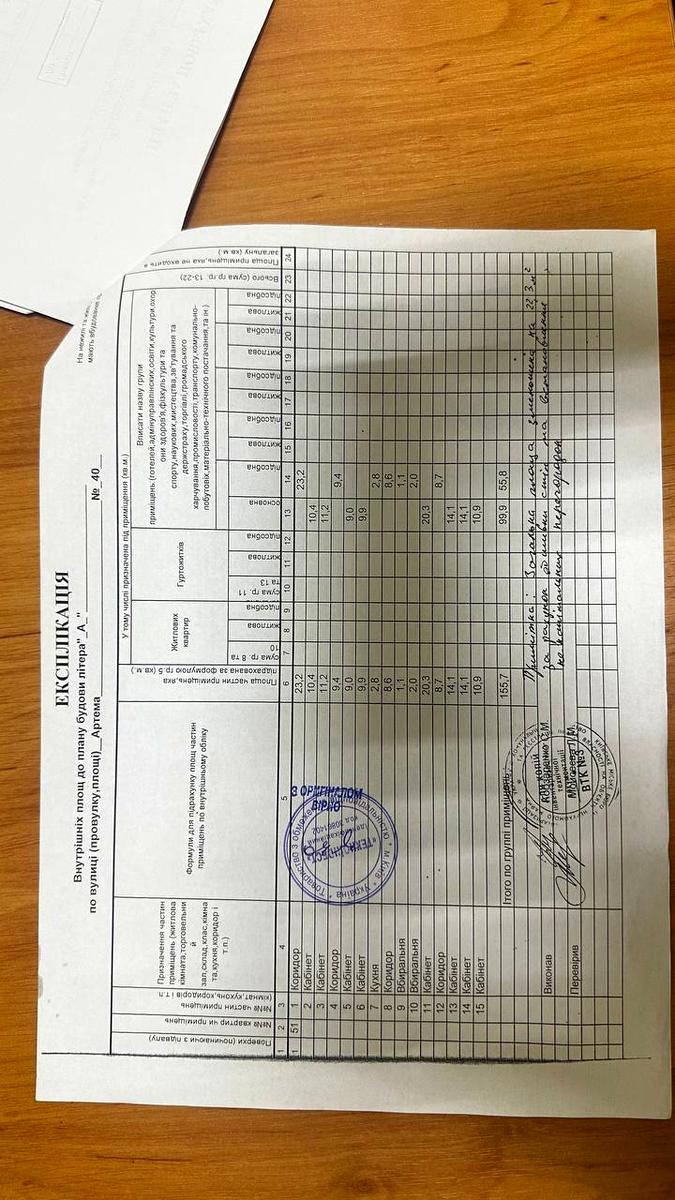 ЕКСПЛІКАЦІЯ
Внутрішніх площ до плану будови літера"_А_"
по вулиці (провулку,площі)__Артема №_40__
На нежилі та
мають вбудовання
Поверхи (починаючи з підвалу)
№№ квартир чи приміщень
№№ частин приміщень (кімнат,кухонь,коридорів і т.п.
Призначення частин приміщень (житлова кімната,торговельний зал,склад,клас,кімната,кухня,коридор і т.п.)
Формули для підрахунку площ частин приміщень по внутрішньому обліку
Площа частин приміщень,яка підрахована за формулою гр.5 (кв.м.)
У тому числі призначена під приміщення (кв.м.)
Житлових квартир
сума гр. 8 та 10
житлова
підсобна
Гуртожитків
сума гр. 11 та 13
житлова
підсобна
Вписати назву групи приміщень:(готелей,адмінуправлінских,освіти,культури,охорони здоров'я,фізкультури та спорту,наукових,мистецтва,зв'тування та держстраху,торгівлі,громадського харчування,промисловості,транспорту,комунально-побутовіх,матеріально-технічного постачання,та ін.)
основна
підсобна
житлова
підсобна
житлова
підсобна
житлова
підсобна
житлова
підсобна
Всього (сума гр гр. 13-22)
Площа приміщень,яка не входить в загальну (кв м.)
1 2 3 4 5 6 7 8 9 10 11 12 13 14 15 16 17 18 19 20 21 22 23 24
1 51 1 Коридор 23,2 23,2
2 Кабінет 10,4 10,4
3 Кабінет 11,2 11,2
4 Коридор 9,4 9,4
5 Кабінет 9,0 9,0
6 Кабінет 9,9 9,9
7 Кухня 2,8 2,8
8 Коридор 8,6 8,6
9 Вбиральня 1,1 1,1
10 Вбиральня 2,0 2,0
11 Кабінет 20,3 20,3
12 Коридор 8,7 8,7
13 Кабінет 14,1 14,1
14 Кабінет 14,1 14,1
15 Кабінет 10,9 10,9
Ітого по группі приміщень: 155,7 99,9 55,8
Примітка: Загальна площа зменшена на 22,3 м²
за рахунок обшивки стін та встановлення
не капітальних перегородок
Виконав
Перевірив
З ОРИГІНАЛОМ
ВІРНО
Україна * м.Київ * Товариство з обмеженою відповідальністю
Ідентифікаційний
код 30861402
інвентаризації
технічної
документації
Моісеєва Л.М.
ВТК №3